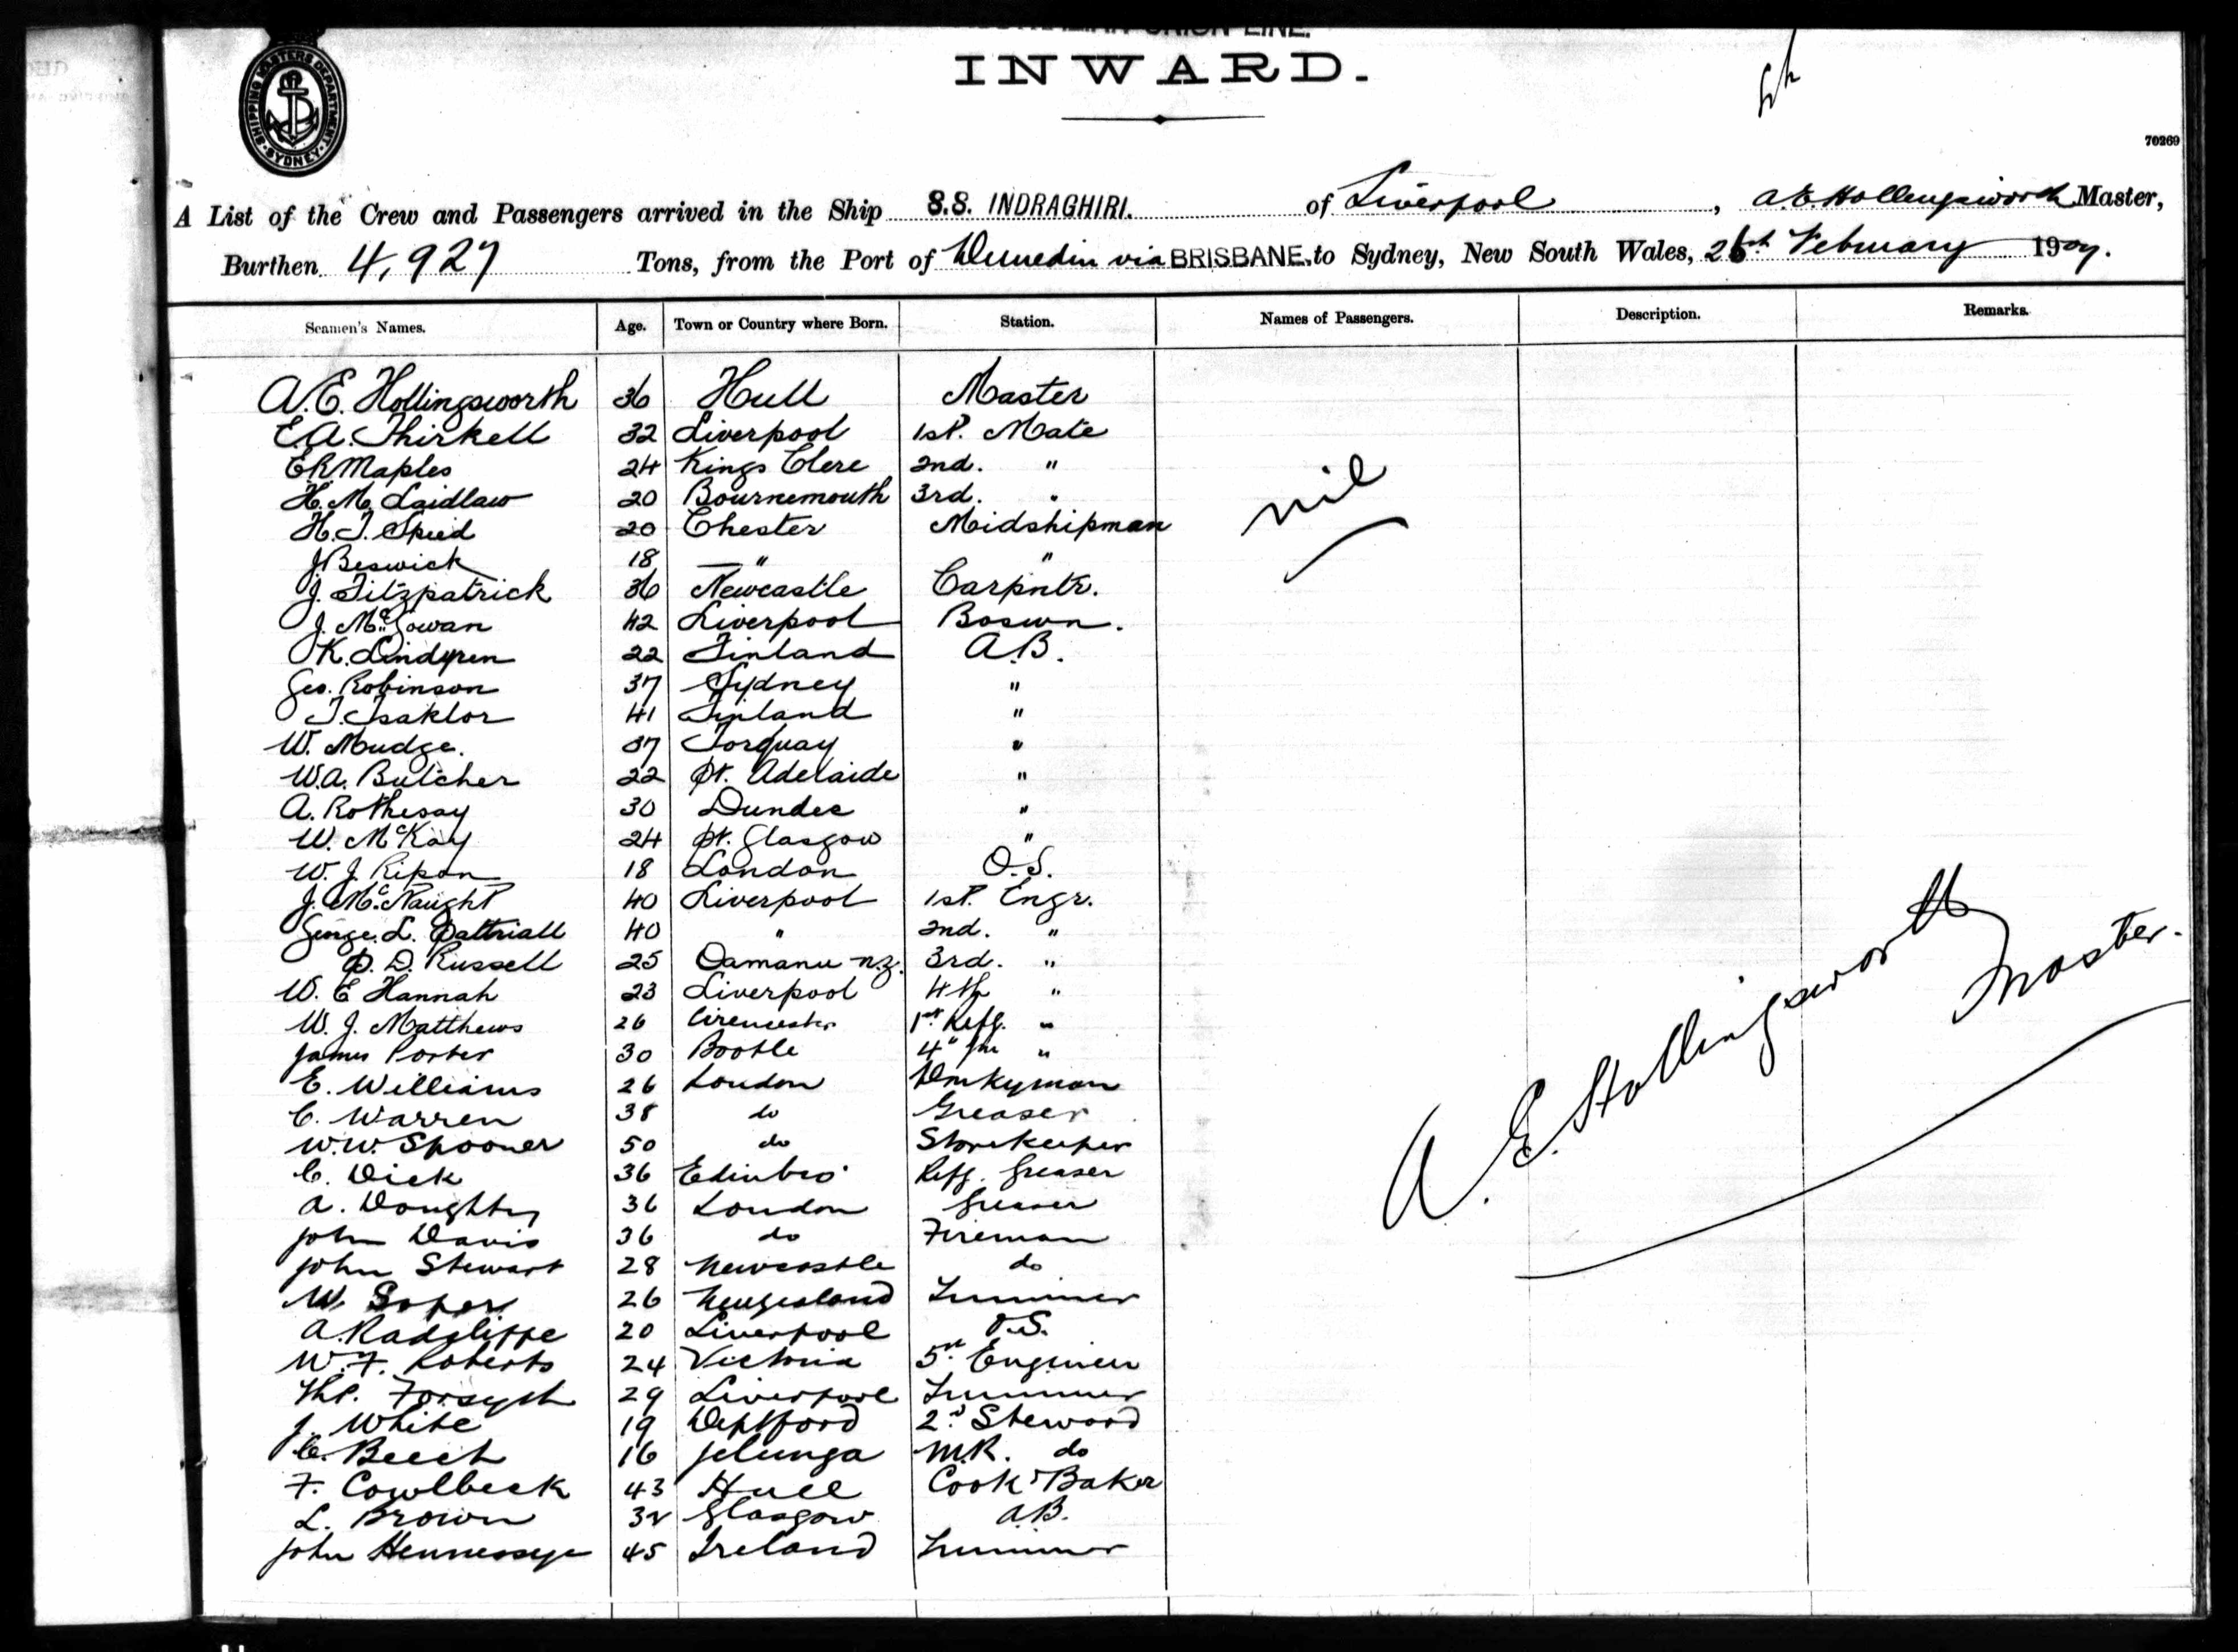 INWARD.
SHIPPING MASTERS DEPARTMENT SYDNEY
70269
A List of the Crew and Passengers arrived in the Ship S.S. INDRAGHIRI. of Liverpool, A.E. Hollingsworth Master,
Burthen 4,927 Tons, from the Port of Dunedin via BRISBANE. to Sydney, New South Wales, February 1907.
Seamen's Names. Age. Town or Country where Born. Station. Names of Passengers. Description. Remarks.
A.E. Hollingsworth 36 Hull Master
E.A. Thirkell 32 Liverpool 1st. Mate
E R Maples 24 Kings Clere 2nd. "
nil
H.M. Laidlaw 20 Bournemouth 3rd. "
H.J. Speed 20 Chester Midshipman
J Beswick 18 " "
J. Fitzpatrick 36 Newcastle Carpntr.
J. McGowan 42 Liverpool Boswn.
K. Lindgren 22 Finland A.B.
Geo. Robinson 37 Sydney "
41 Finland "
W. Mudge. 37 Torquay "
W.A. Butcher 22 Pt. Adelaide "
A. Rothesay 30 Dundee "
W. McKay 24 Pt. Glasgow "
W. J. Ripon 18 London O.S.
J. McNaught 40 Liverpool 1st. Engr.
George. L. 40 " 2nd. "
P. D. Russell 25 Oamanu N.Z. 3rd. "
W. E Hannah 23 Liverpool 4th "
W. J. Matthews 26 Cirencester 1st Refg. "
James Porter 30 Bootle 4" "
E. Williams 26 London Donkyman
C. Warren 38 do Greaser
W.W. Spooner 50 do Storekeeper
C. Dick 36 Edinbro' Refg. Greaser
A. Doughty 36 London Greaser
John Davis 36 do Fireman
John Stewart 28 Newcastle do
W. Soper 26 Newzealand Trimmer
A. Radcliffe 20 Liverpool O.S.
W.F. Roberts 24 Victoria 5th Engineer
Forsyth 29 Liverpool Trimmer
J. White 19 Deptford 2nd Steward
C. Beech 16 M.R. do
F. Cowlbeck 43 Hull Cook & Baker
L. Brown 32 Glasgow A.B.
John Hennessye 45 Ireland Trimmer
A. E. Hollingsworth
Master.